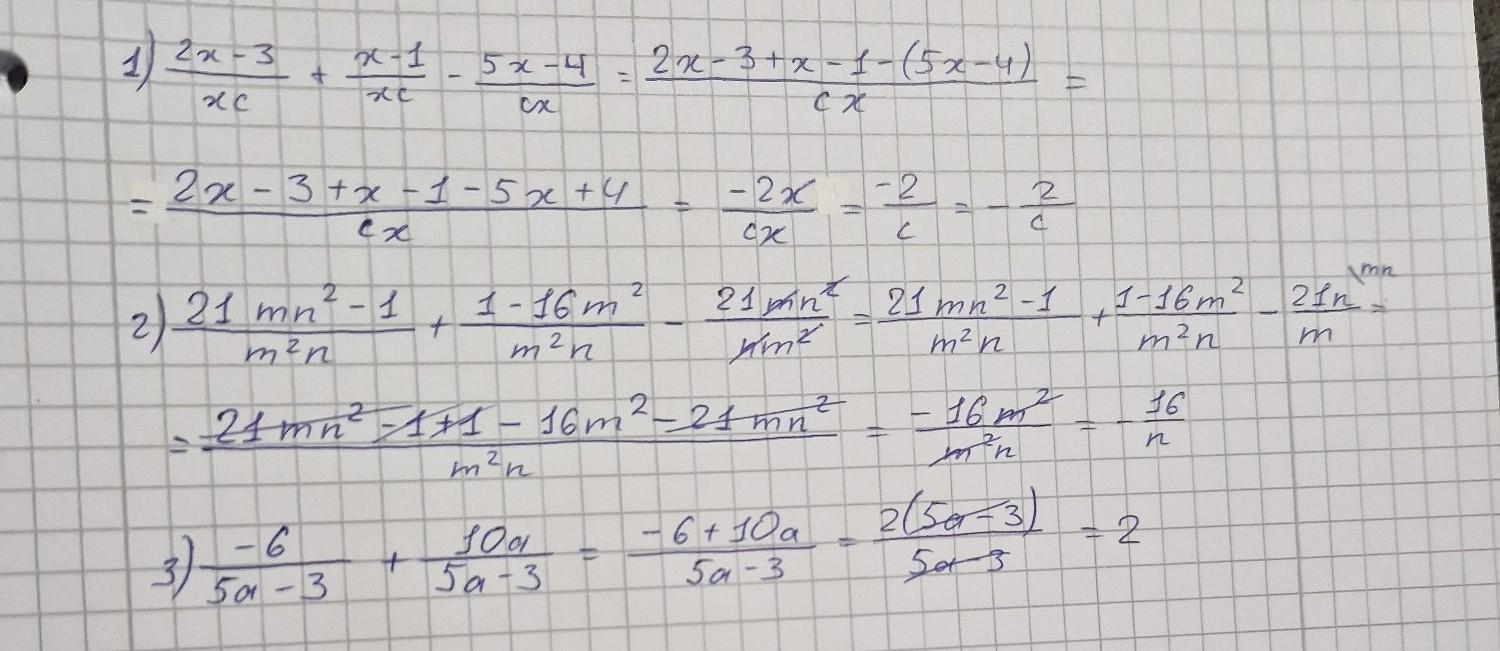 1) (2x-3)/(xc) + (x-1)/(xc) - (5x-4)/(cx) = (2x-3+x-1-(5x-4))/(cx) =
= (2x-3+x-1-5x+4)/(cx) = (-2x)/(cx) = (-2)/c = -2/c
2) (21mn²-1)/(m²n) + (1-16m²)/(m²n) - (21mn²)/(nm²) = (21mn²-1)/(m²n) + (1-16m²)/(m²n) - (21n)/m \mn =
= (21mn²-1+1-16m²-21mn²)/(m²n) = (-16m²)/(m²n) = -16/n
3) (-6)/(5a-3) + (10a)/(5a-3) = (-6+10a)/(5a-3) = (2(5a-3))/(5a-3) = 2